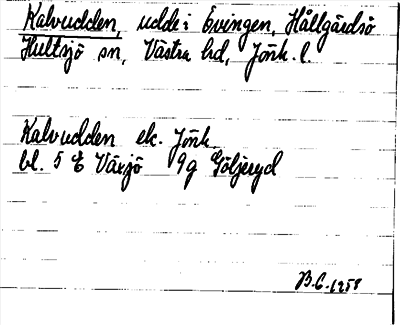 Kalvudden, udde i Evingen, Hållgårdsö
Hultsjö sn, Västra hd, Jönk. l.
Kalvudden ek. Jönk.
bl. 5 E Växjö 9g Göljeryd
B.C. 1958